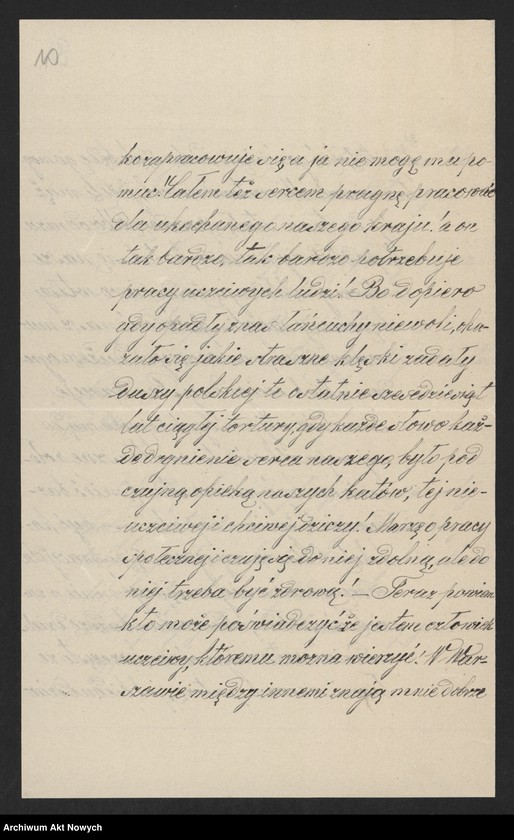 10
ko zapracowuje się a ja nie mogę mu po-
móc. Całem też sercem pragnę pracować
dla ukochanego naszego kraju! a on
tak bardzo, tak bardzo potrzebuje
pracy uczciwych ludzi! Bo dopiero
gdy opadły z nas łańcuchy niewoli, oka-
zało się jakie straszne klęski zadały
duszy polskiej te ostatnie sześćdziesiąt
lat ciągłej tortury, gdy każde słowo każ-
de drgnienie serca naszego, było pod
czujną opieką naszych katów, tej nie-
uczciwej i chciwej dziczy! Marzę o pracy
społecznej i czuję się do niej zdolną, ale do
niej trzeba być zdrową! — Teraz powiem
kto może poświadczyć że jestem człowiek
uczciwy, któremu można wierzyć! W War-
szawie między innemi znają mnie dobrze
Archiwum Akt Nowych